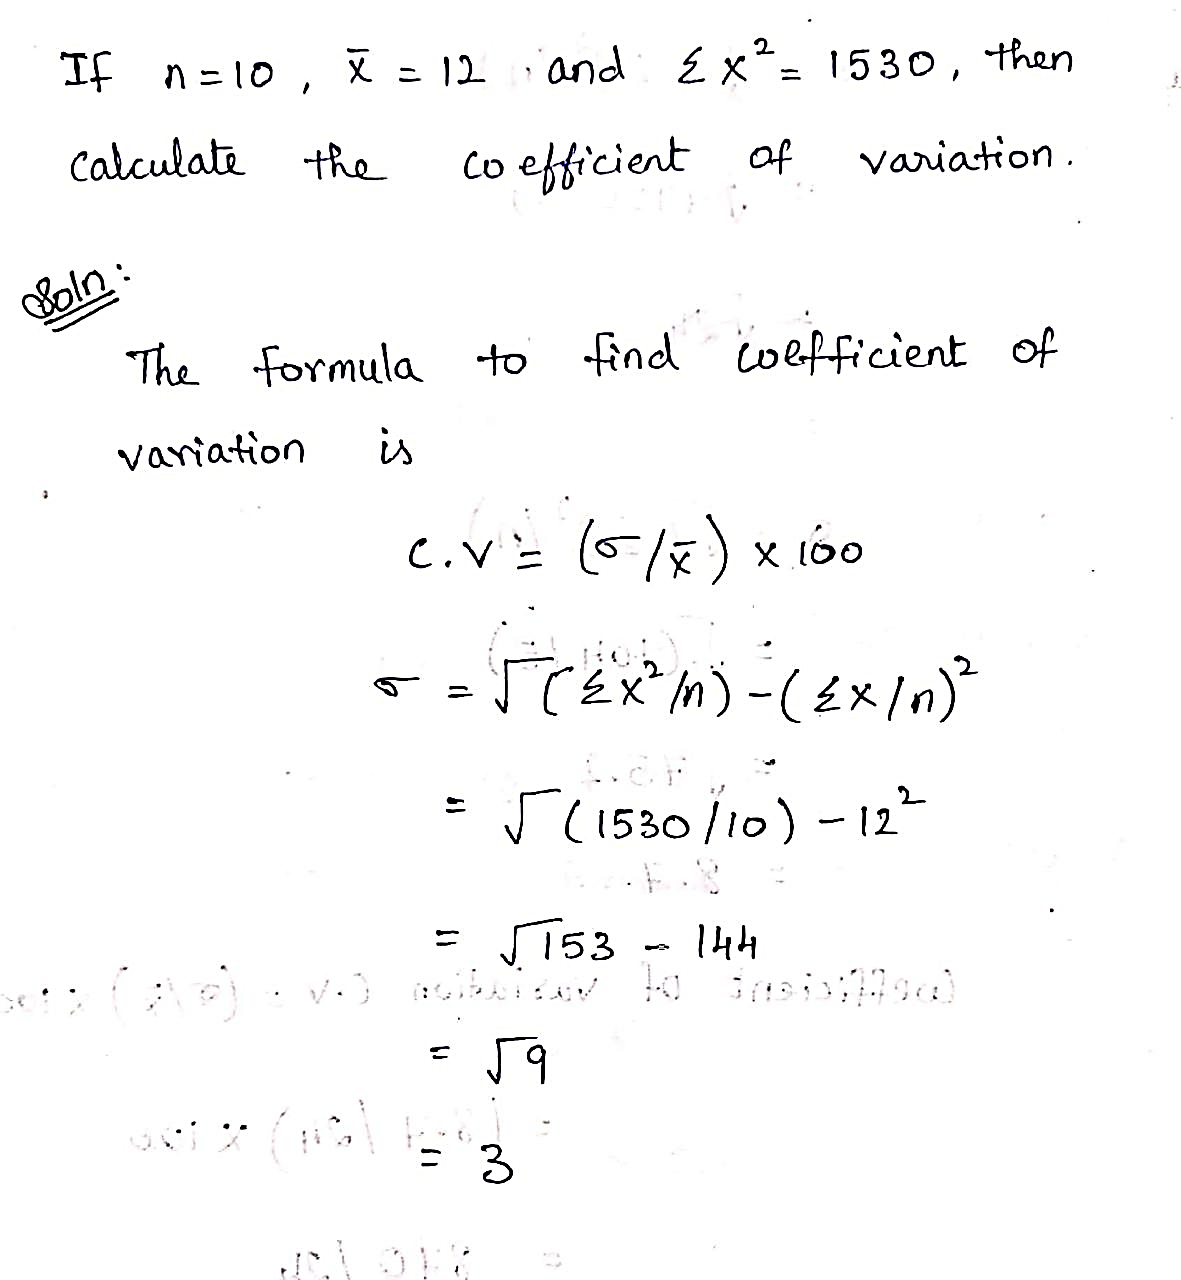 If n=10, x̄ = 12 and Σx² = 1530, then
calculate the coefficient of variation.
Soln:
The formula to find coefficient of
variation is
C.V = (σ/x̄) x 100
σ = √(Σx²/n) - (Σx/n)²
= √(1530/10) - 12²
= √153 - 144
= √9
= 3